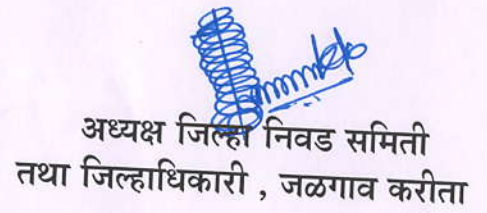 अध्यक्ष जिल्हा निवड समिती
तथा जिल्हाधिकारी , जळगाव करीता